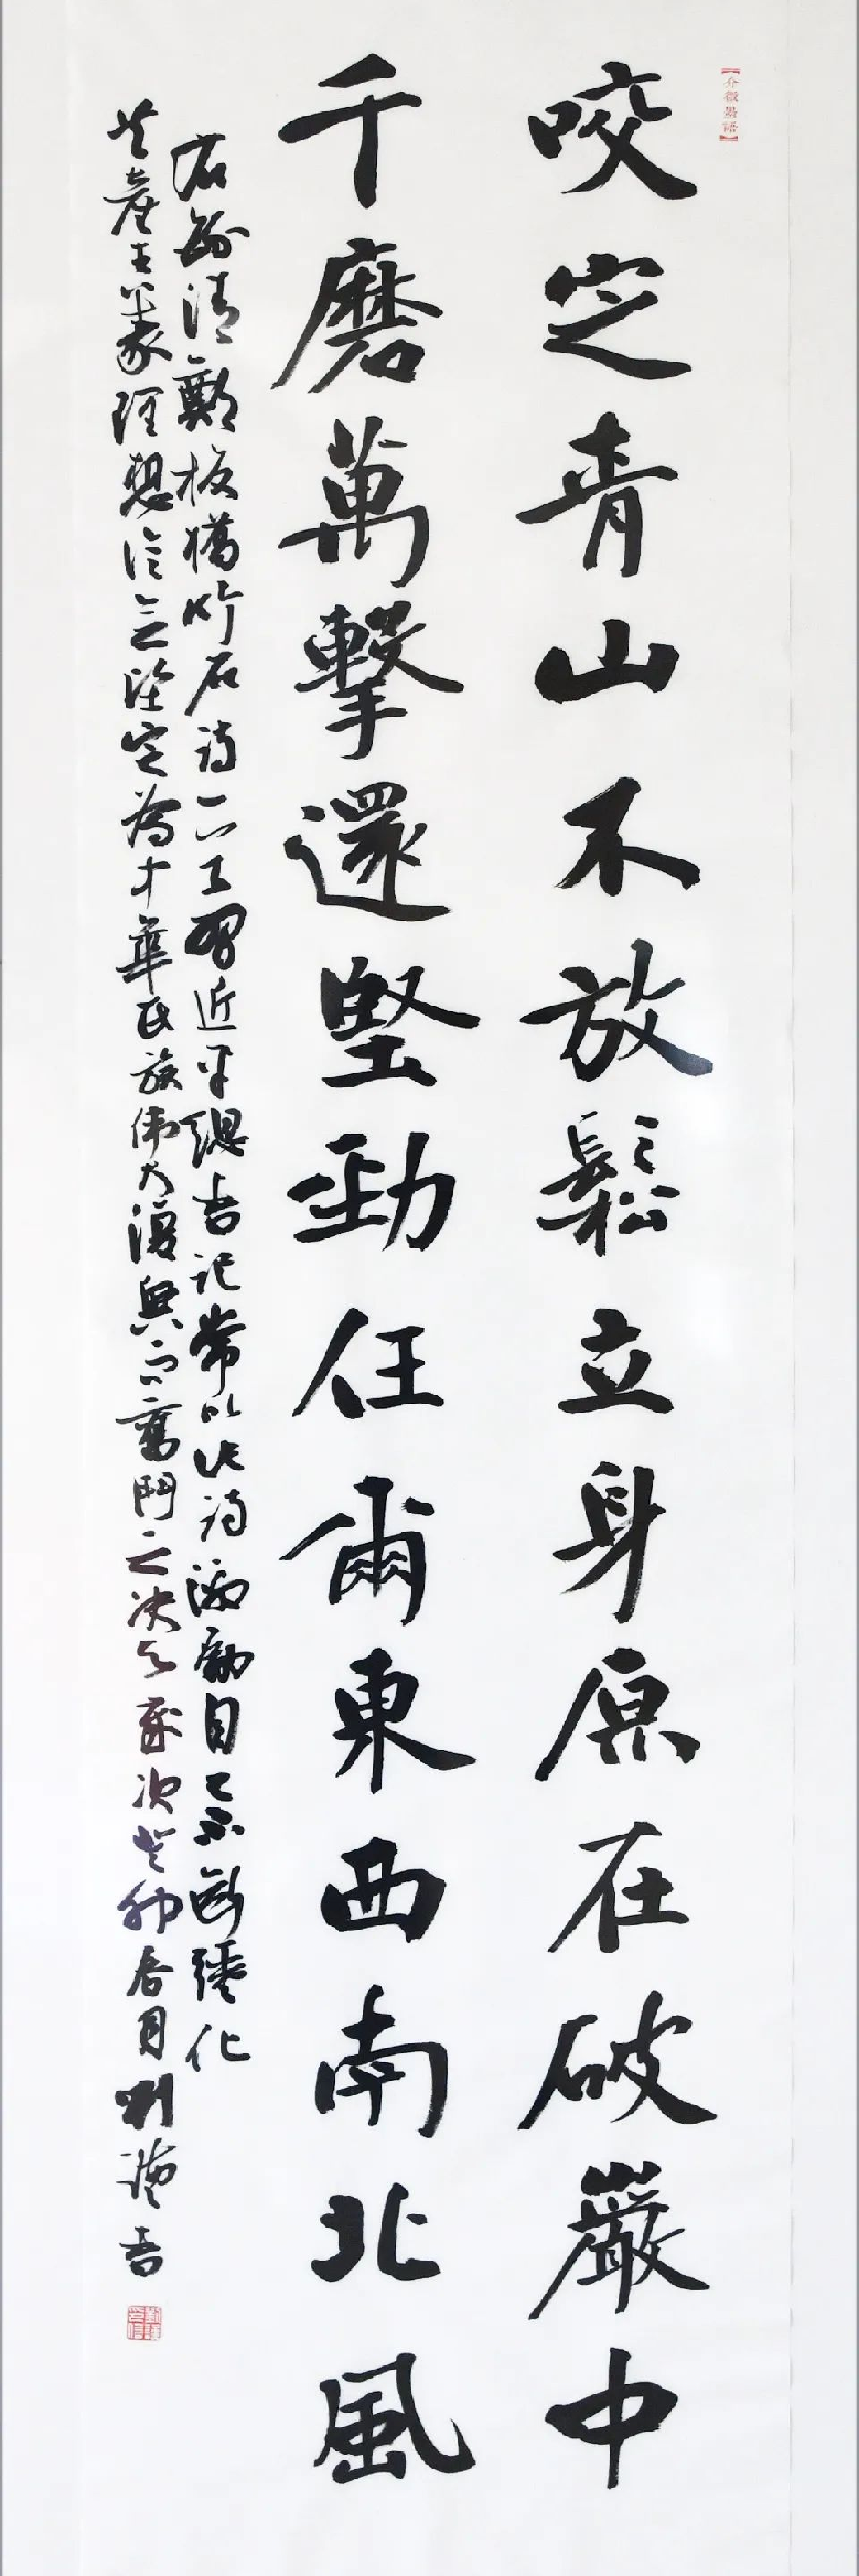 咬定青山不放鬆立身原在破巖中
千磨萬擊還堅勁任爾東西南北風
右錄清鄭板橋竹石詩一首習近平總書記常以此詩激勵自己不斷強化
共產主義理想信念堅定為中華民族偉大復興而奮鬥之決心歲次癸卯春月劉謹書